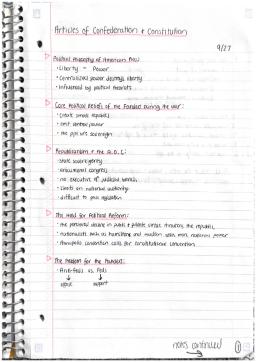 Articles of Confederation + Constitution
9/27
Political Philosophy of American Rev:
• Liberty - Power
• Centralized power destroys liberty
• Influenced by political theorists
Core Political Beliefs of the Founders During the War:
• Create small republics
• limit central power
• the ppl were sovereign
Republicanism + the A.O.C:
• State sovereignty
• unicameral congress
• no executive or judicial branch
• limits on national authority
• difficult to pass legislation
The Need for Political Reform:
• the perceived decline in public + private virtue threatens the republic
• nationalists such as Hamilton and Madison want more national power
• Annapolis convention calls for constitutional convention
The Problem for the
• Anti-Feds vs. Feds
oppose support
notes continued 1